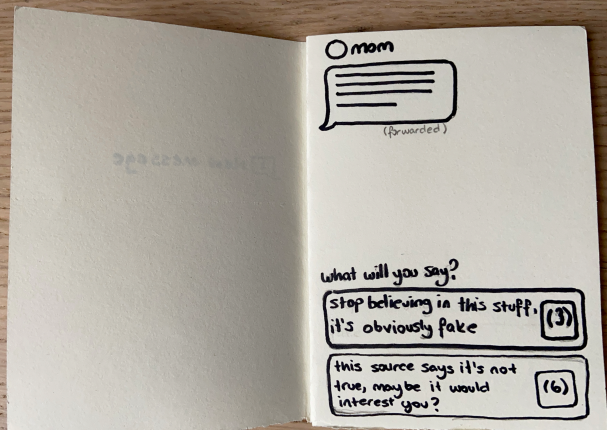 [1] new message
mom
(forwarded)
what will you say?
stop believing in this stuff,
it's obviously fake
(3)
this source says it's not
true, maybe it would
interest you?
(6)